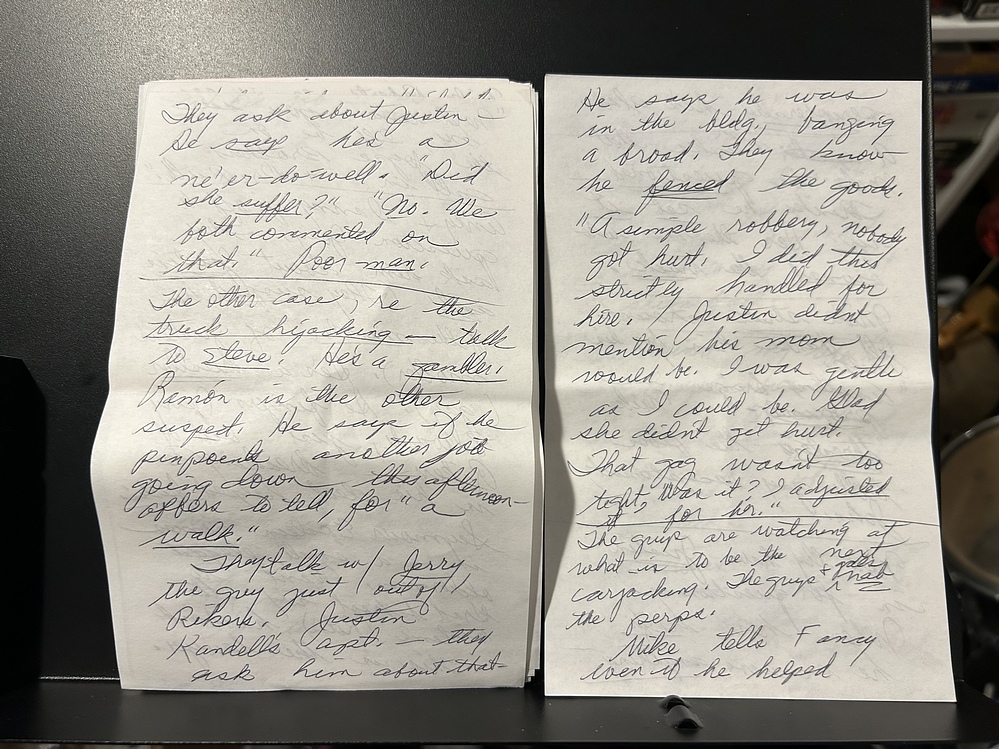 They ask about Justin -
He says he's a
ne'er-do-well. "Did
she suffer?" "No. We
both commented on
that." Poor man.
The other case, re the
truck hijacking - talk
to Steve. He's a gambler.
Ramón is the other
suspect. He says if he
pinpoints another job
going down - this afternoon -
offers to tell, for "a
walk."
They talk w/ Jerry
the guy just "out of"
Rikers. Justin
Kandell's apt. - they
ask him about that -
He says he was
in the bldg, banging
a broad. They know
he fenced the goods.
"A simple robbery, nobody
got hurt. I did this
strictly handled for
hire. Justin didnt
mention his mom
would be. I was gentle
as I could be. Glad
she didnt get hurt.
That gag wasn't too
tight, was it? I adjusted
it for her."
The guys are watching at
what is to be the next
carjacking. The guys + nab
the perps.
Mike tells Fancy
even if he helped